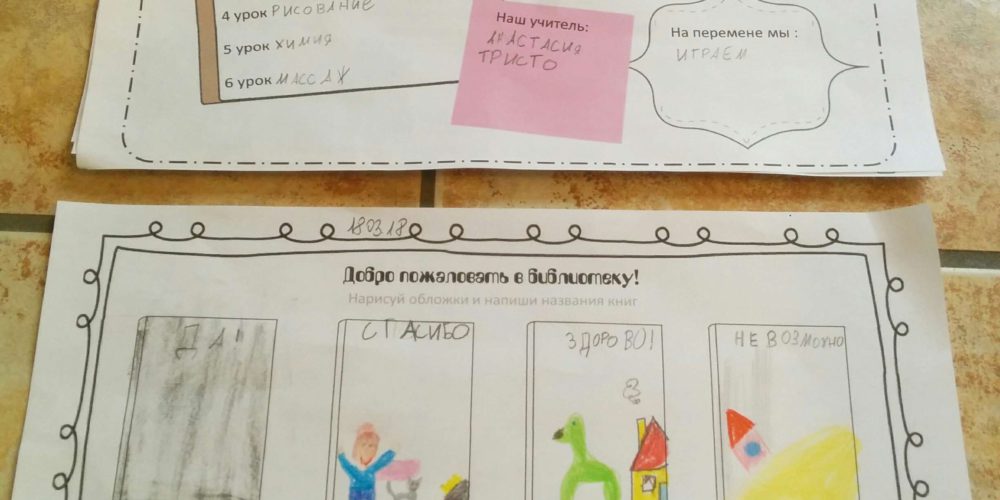 4 урок РИСОВАНИЕ
5 урок ХИМИЯ
6 урок МАССАЖ
Наш учитель:
АНАСТАСИЯ
ТРИСТО
На перемене мы :
ИГРАЕМ
180318
Добро пожаловать в библиотеку!
Нарисуй обложки и напиши названия книг
ДА!
СПАСИБО
ЗДОРОВО!
НЕВОЗМОЖНО